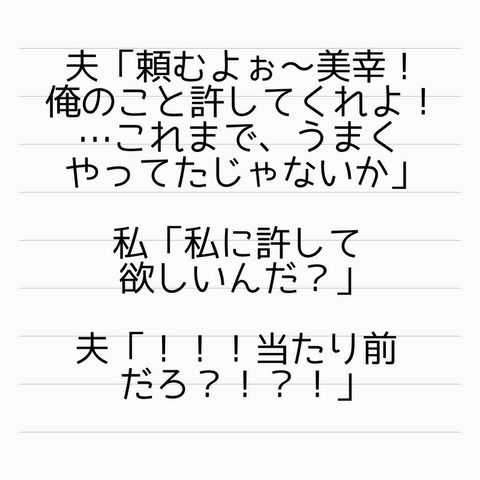 夫「頼むよぉ〜美幸！
俺のこと許してくれよ！
…これまで、うまく
やってたじゃないか」
私「私に許して
欲しいんだ？」
夫「！！！当たり前
だろ？！？！」